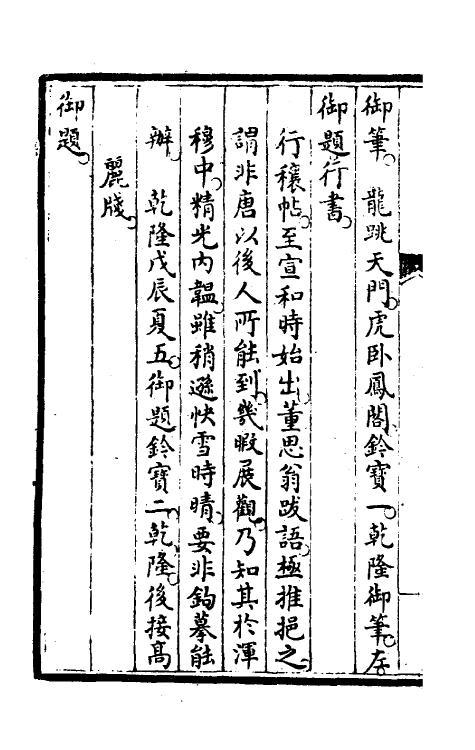 御筆龍跳天門虎卧鳳閣鈐寶一乾隆御筆左
御題行書
行穰帖至宣和時始出董思翁跋語極推挹之
謂非唐以後人所能到幾暇展觀乃知其於渾
穆中精光内韞雖稍遜快雪時晴要非鈎摹能
辦乾隆戊辰夏五御題鈐寶二乾隆後接高
麗牋
御題